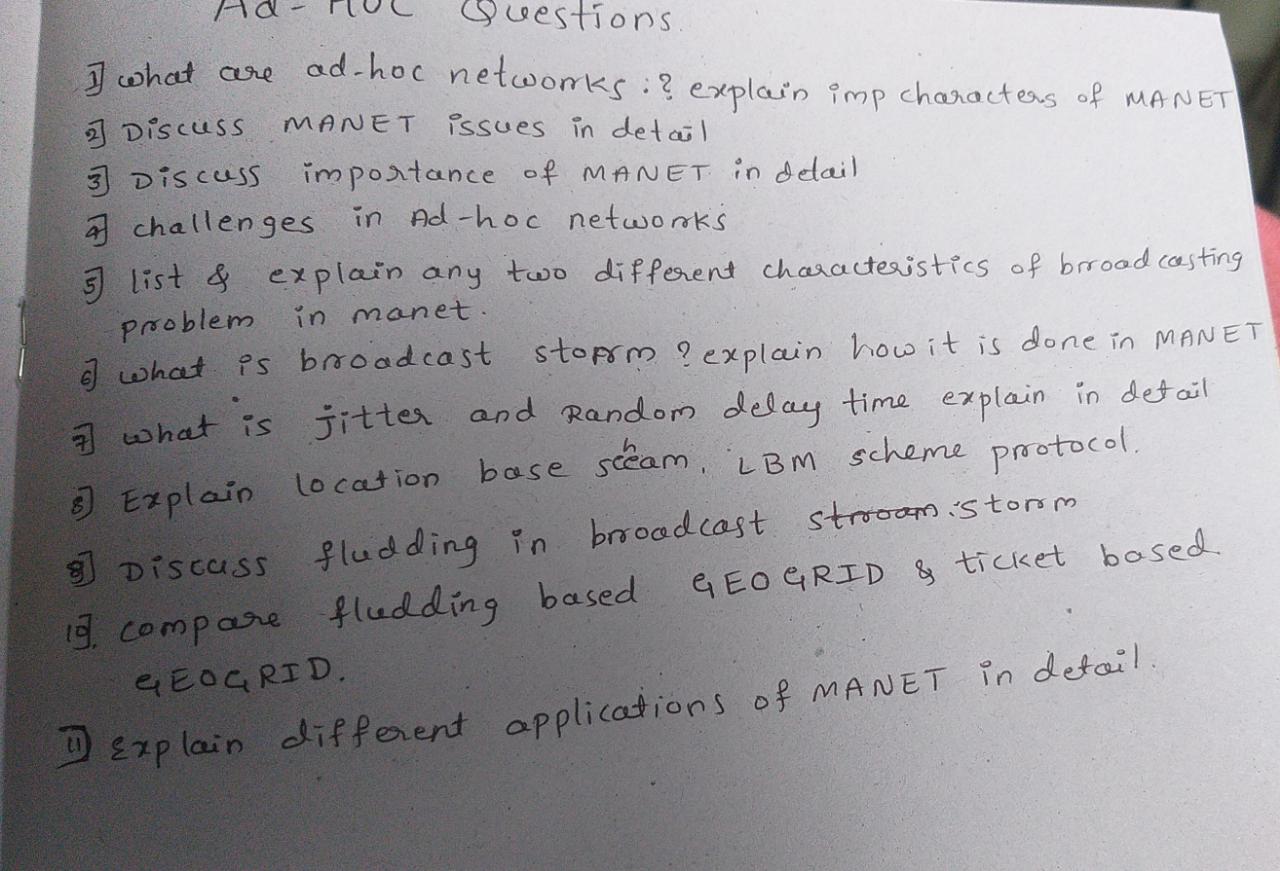 Ad-Hoc Questions.
1] what are ad-hoc networks :? explain imp characters of MANET
2] Discuss MANET issues in detail
3] Discuss importance of MANET in detail
4] challenges in Ad-hoc networks
5] list & explain any two different characteristics of broadcasting
problem in manet.
6] what is broadcast storm ? explain how it is done in MANET
7] what is jitter and Random delay time explain in detail
8] Explain location base scheam, LBM scheme protocol.
9] Discuss fludding in broadcast storm
10]. compare fludding based GEOGRID & ticket based
GEOGRID.
11] Explain different applications of MANET in detail.